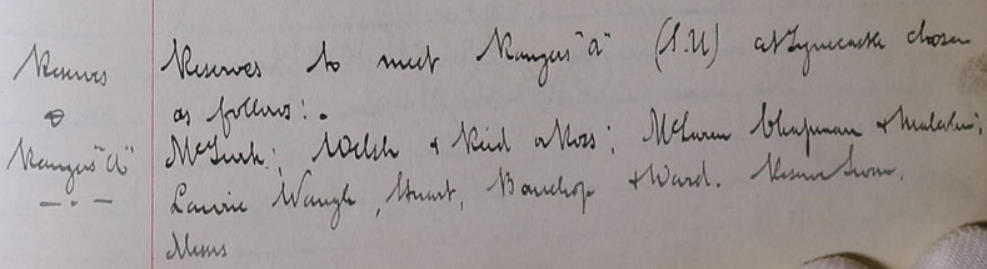 Reserves
v
Rangers "A"
Reserves to meet Rangers "A" (S.U) at Tynecastle chosen
as follows:.
McGurk; Welsh & Reid or Ross; McLaren Chapman &
Lawrie Waugh, Stuart, Bauchop & Ward. Reserve